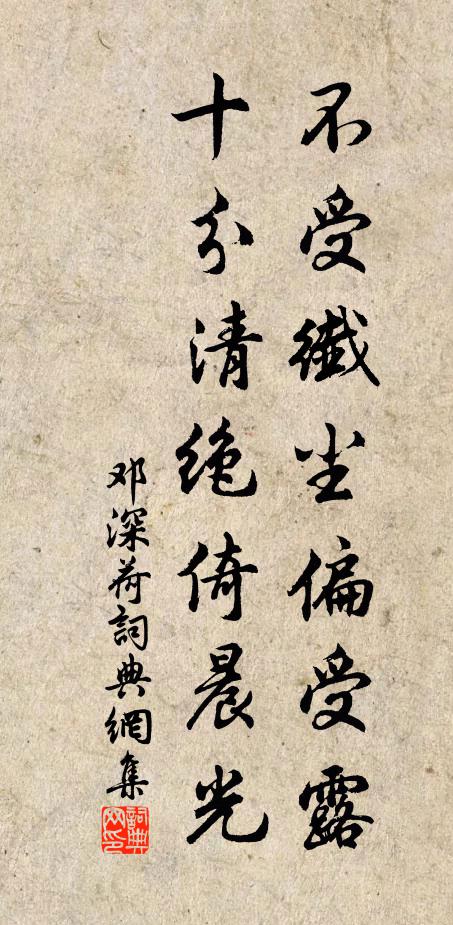 不受纖尘偏受露
十分清绝倚晨光
邓深荷詞典網集
詞典网印